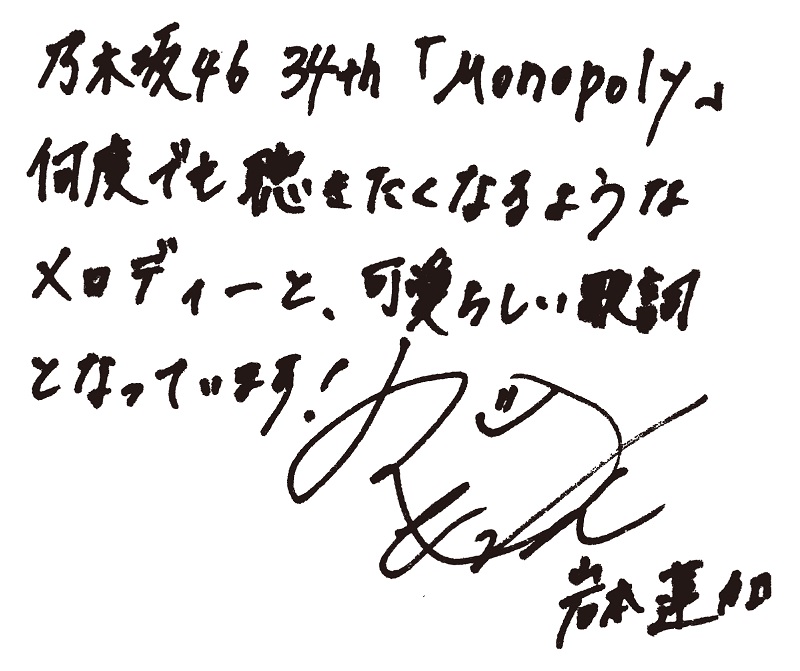 乃木坂46 34th「Monopoly」
何度でも聴きたくなるような
メロディーと、可愛らしい歌詞
となっています!
岩本蓮加